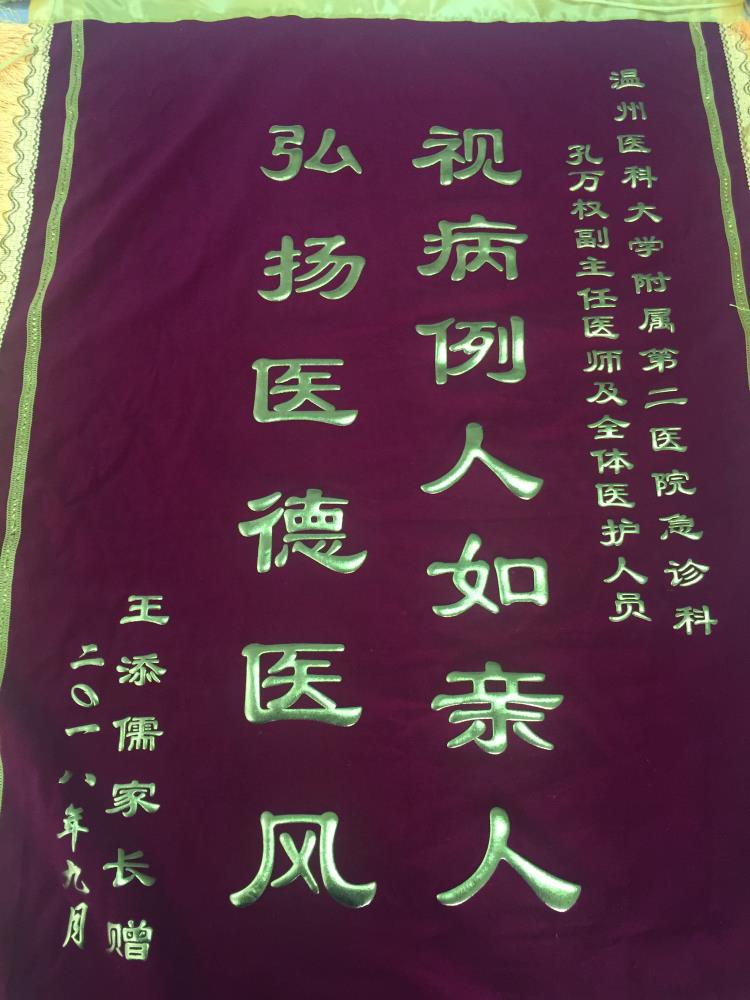 温州医科大学附属第二医院急诊科
孔万权副主任医师及全体医护人员
视病例人如亲人
弘扬医德医风
王添儒家长赠
二〇一八年九月